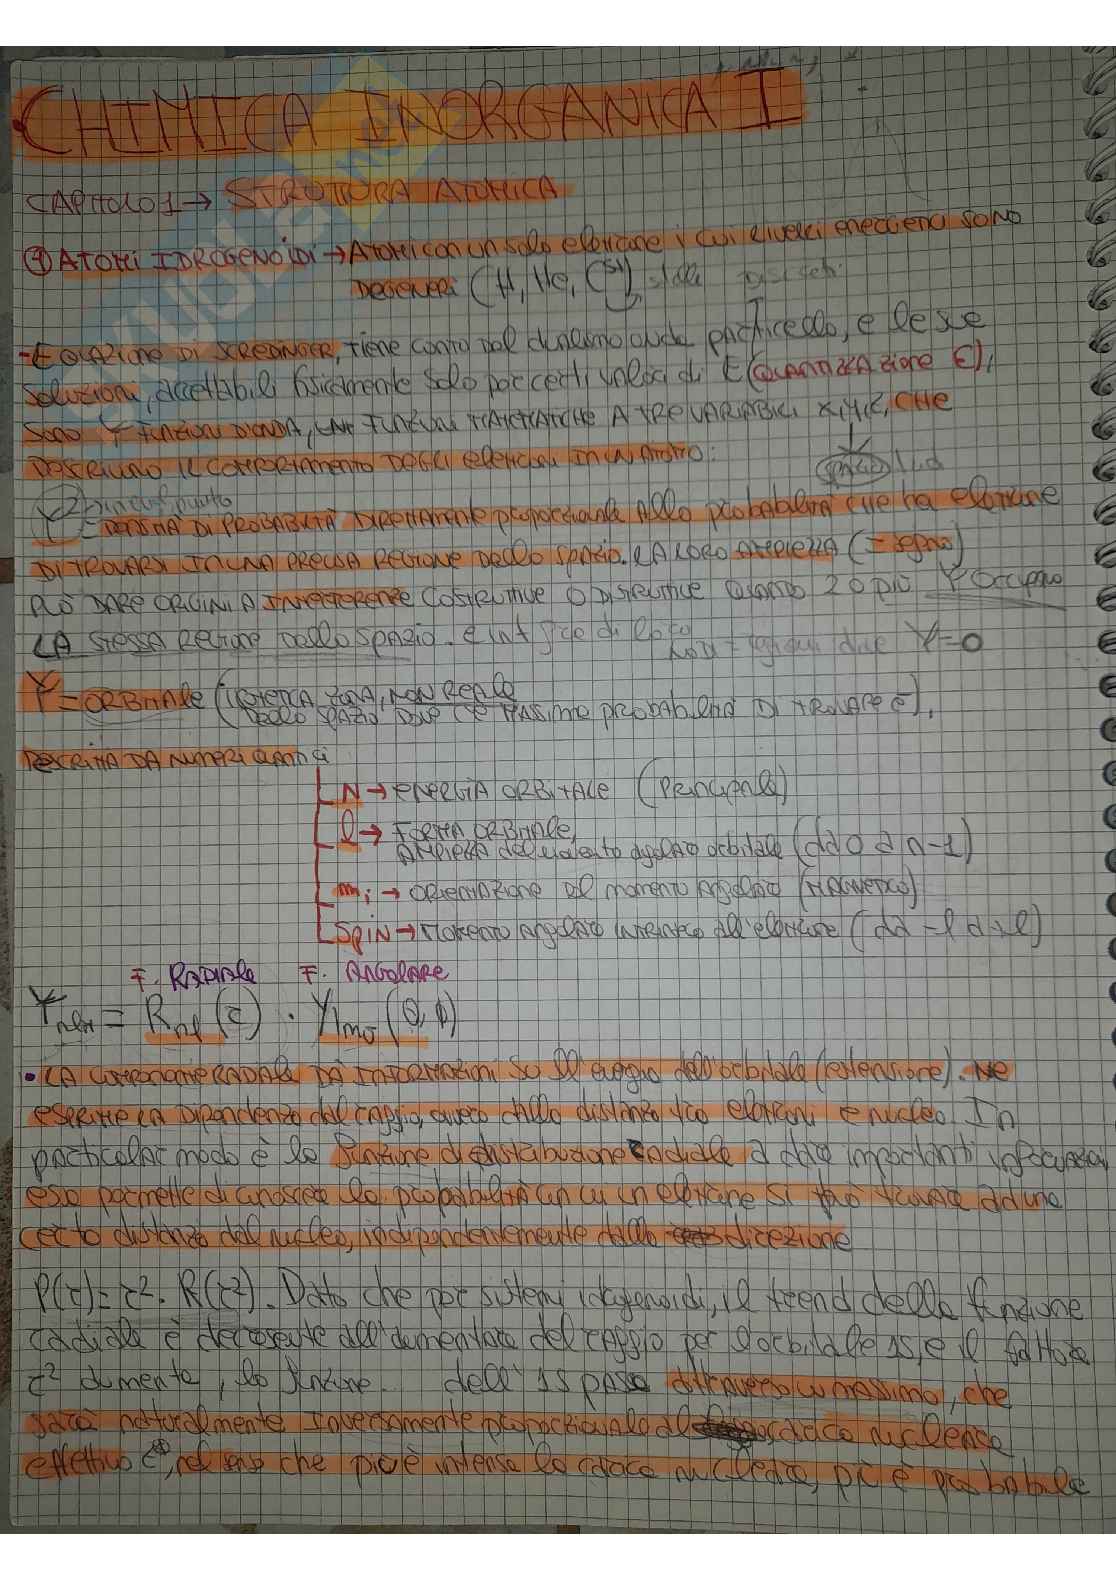 CHIMICA INORGANICA I
CAPITOLO 1 → STRUTTURA ATOMICA
① ATOMI IDROGENOIDI → Atomi con un solo elettrone i cui livelli energetici SONO
DEGENERI (H, He, C⁵⁺)
- EQUAZIONE DI SCREDINGER, tiene conto del dualismo onda particella, e le sue
soluzioni, accettabili fisicamente solo per certi valori di E (QUANTIZZAZIONE E),
SONO Ψ FUNZIONI D'ONDA, FUNZIONI MATEMATICHE A TRE VARIABILI x,y,z, CHE
DESCRIVONO IL COMPORTAMENTO DEGLI elettroni IN UN ATOMO:
Ψ² in quel punto
= DENSITÀ DI PROBABILITÀ DIRETTAMENTE proporzionale Alla probabilità che ha elettrone
DI TROVARSI IN UNA PRECISA REGIONE Dello spazio. LA LORO AMPIEZZA (± segno)
PUÒ DARE ORIGINI A INTERFERENZE COSTRUTTIVE O DISTRUTTIVE QUANDO 2 O PIÙ Ψ Occupano
LA STESSA REGIONE Dello spazio. e
NODI = regioni dove Ψ=0
Ψ = ORBITALE (IPOTETICA ZONA, NON REALE
DELLO SPAZIO DOVE C'È MASSIMA probabilità DI TROVARE e⁻),
DESCRITTA DA NUMERI QUANTICI
N → ENERGIA ORBITALE (Principale)
l → FORMA ORBITALE,
AMPIEZZA del momento angolare orbitale (da 0 a n-1)
m → ORIENTAZIONE del momento angolare (MAGNETICO)
SPIN → Momento angolare intrinseco all'elettrone (da -l a +l)
F. RADIALE F. ANGOLARE
Ψ = R (r) · Y (θ, ϕ)
• LA COMPONENTE RADIALE DÀ INFORMAZIONI SU All'energia dell'orbitale (estensione). Ne
ESPRIME LA Dipendenza dal raggio, ovvero dalla distanza tra elettroni e nucleo. In
particolar modo è la funzione di distribuzione radiale a dare importanti informazioni
essa permette di conoscere la probabilità con cui un elettrone si può trovare ad una
certa distanza dal nucleo, indipendentemente dalla direzione
P(r) = r² · R(r²). Dato che per sistemi idrogenoidi, il trend della funzione
radiale è decrescente all'aumentare del raggio per l'orbitale 1s, e il fattore
r² aumenta, la funzione dell'1s passa attraverso un massimo, che
sarà naturalmente inversamente proporzionale alla carica nucleare
effettiva, nel senso che più è intensa la carica nucleare, più è probabile